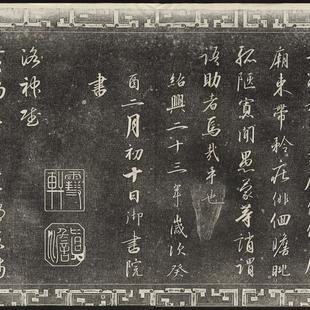 廟束帶矜莊徘徊瞻眺
孤陋寡聞愚蒙等誚謂
語助者焉哉乎也
紹興二十三年歲次癸
酉二月初十日御書院
書
洛神賦